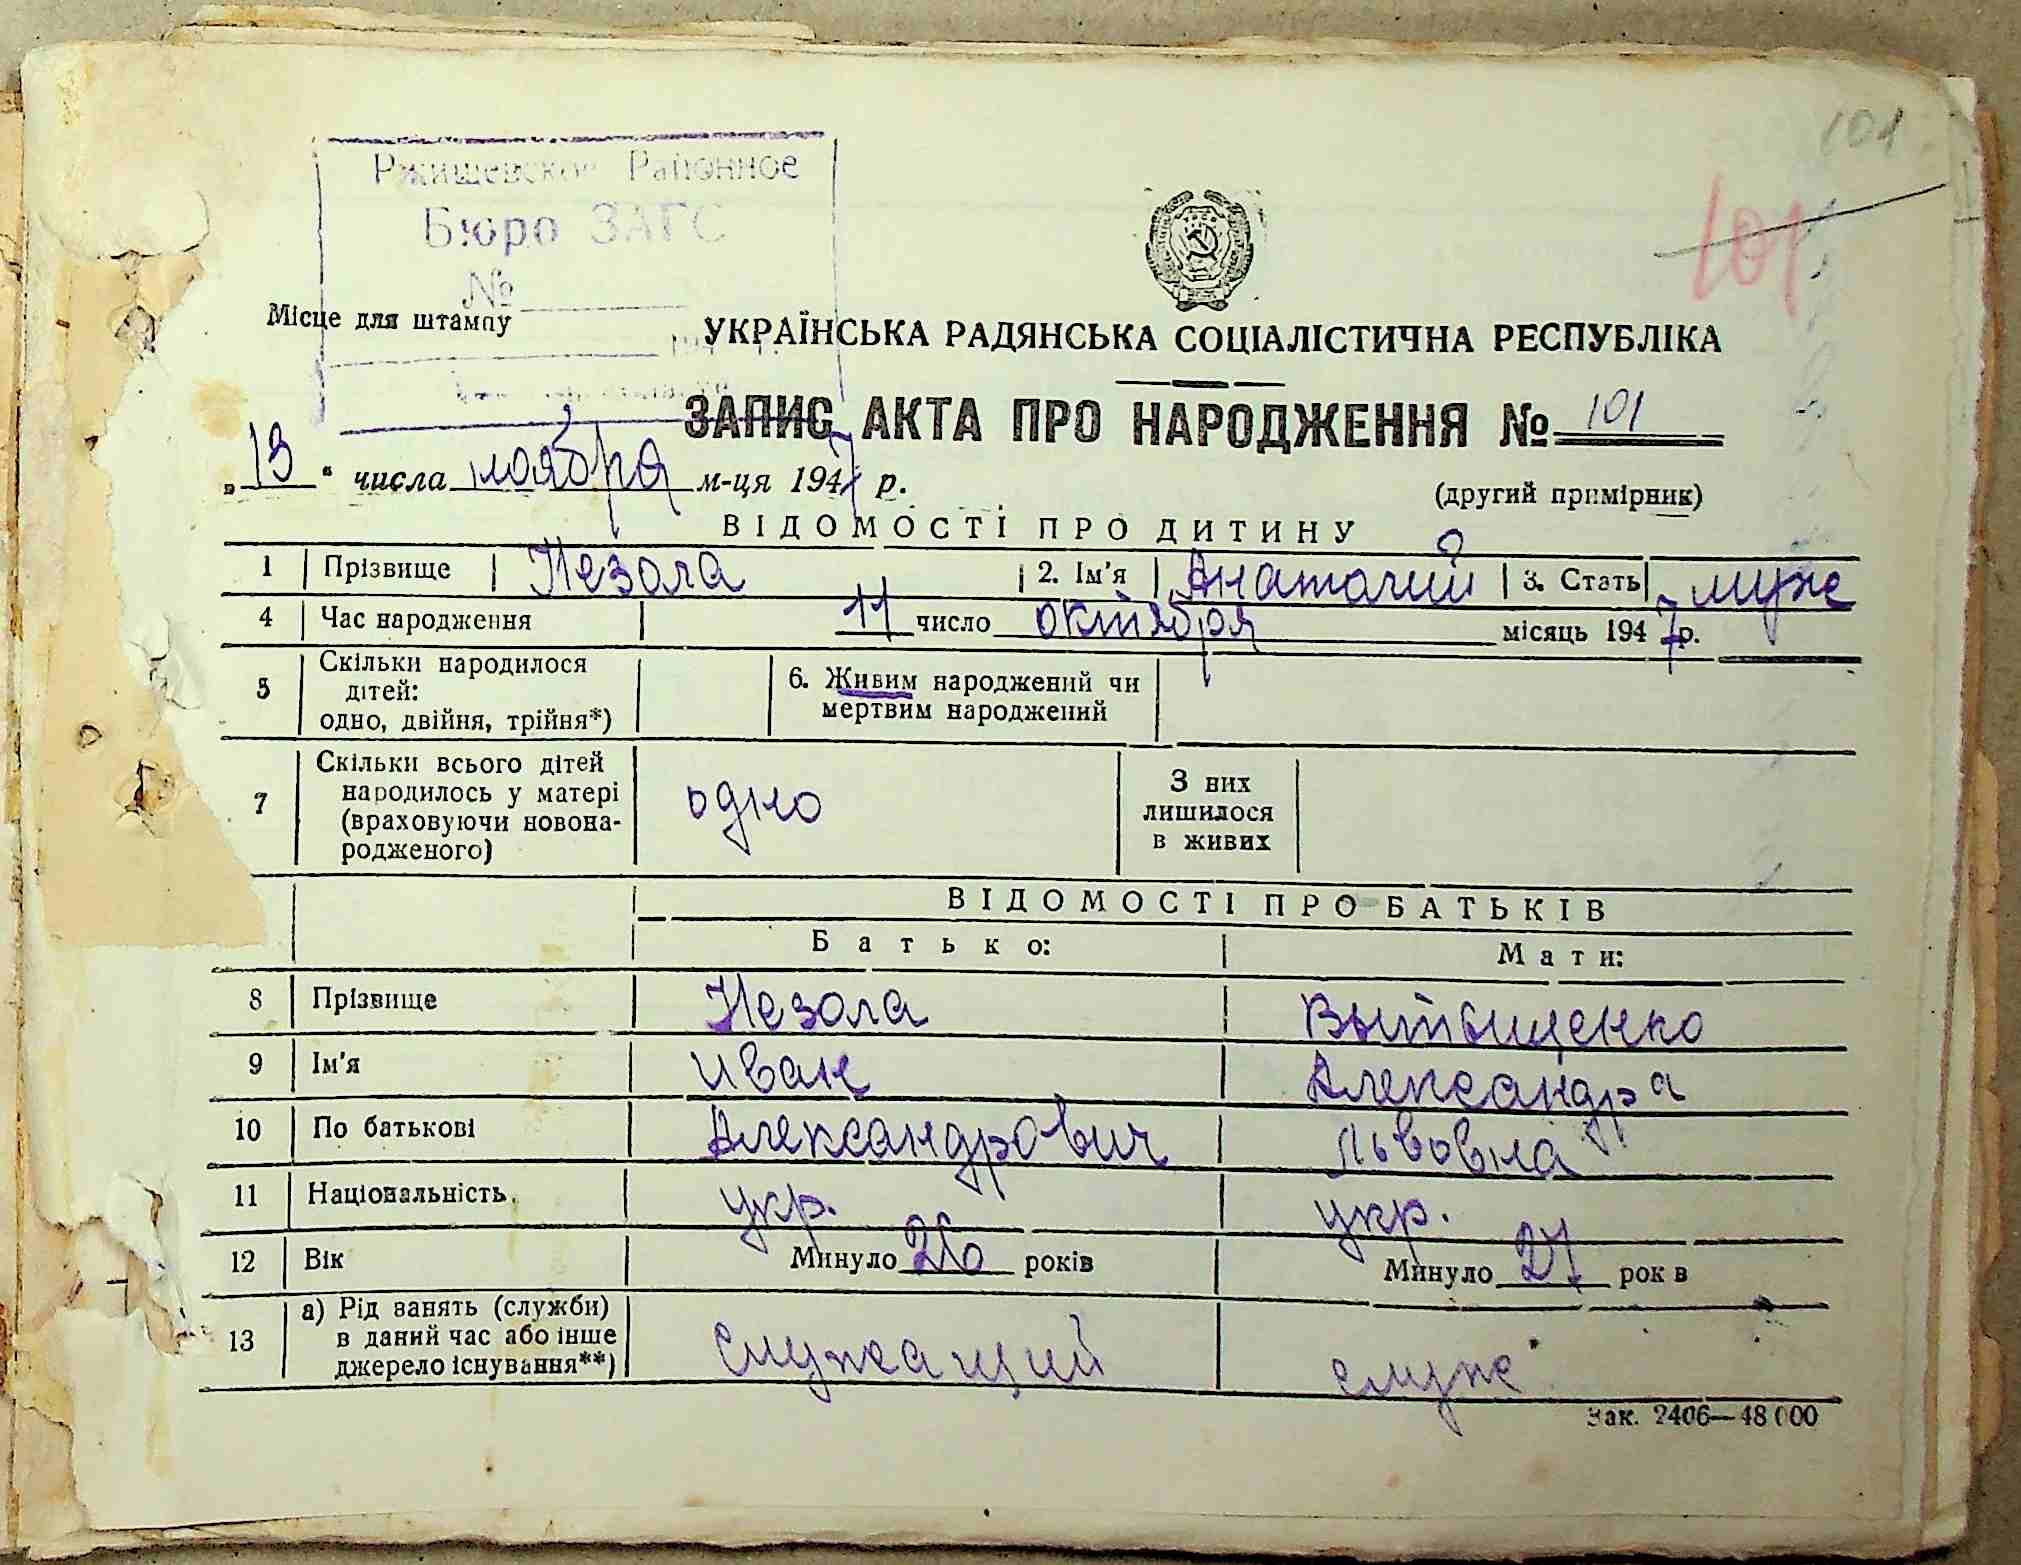 101
Ржищевское Районное
Бюро ЗАГС
№
101
Місце для штампу
УКРАЇНСЬКА РАДЯНСЬКА СОЦІАЛІСТИЧНА РЕСПУБЛІКА
ЗАПИС АКТА ПРО НАРОДЖЕННЯ № 101
„13“ числа ноября м-ця 1947 р.
(другий примірник)
ВІДОМОСТІ ПРО ДИТИНУ
1 Прізвище Незола 2. Ім'я Анатолий 3. Стать муж
4 Час народження 11 число октября місяць 1947 р.
5 Скільки народилося дітей: одно, двійня, трійня*) 6. Живим народжений чи мертвим народжений
7 Скільки всього дітей народилось у матері (враховуючи новонародженого) одно З них лишилося в живих
ВІДОМОСТІ ПРО БАТЬКІВ
Батько: Мати:
8 Прізвище Незола
9 Ім'я Иван Александра
10 По батькові Александрович Львовна
11 Національність укр. укр.
12 Вік Минуло 26 років Минуло 27 рок в
13 а) Рід занять (служби) в даний час або інше джерело існування**) служащий служ
Зак. 2406—48000